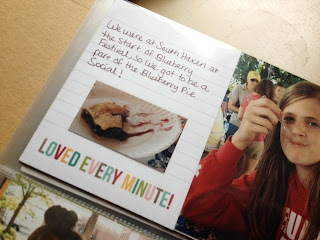 We were at South Haven at
the start of Blueberry
Festival, so we got to be a
part of the Blueberry Pie
Social!
LOVED EVERY MINUTE!